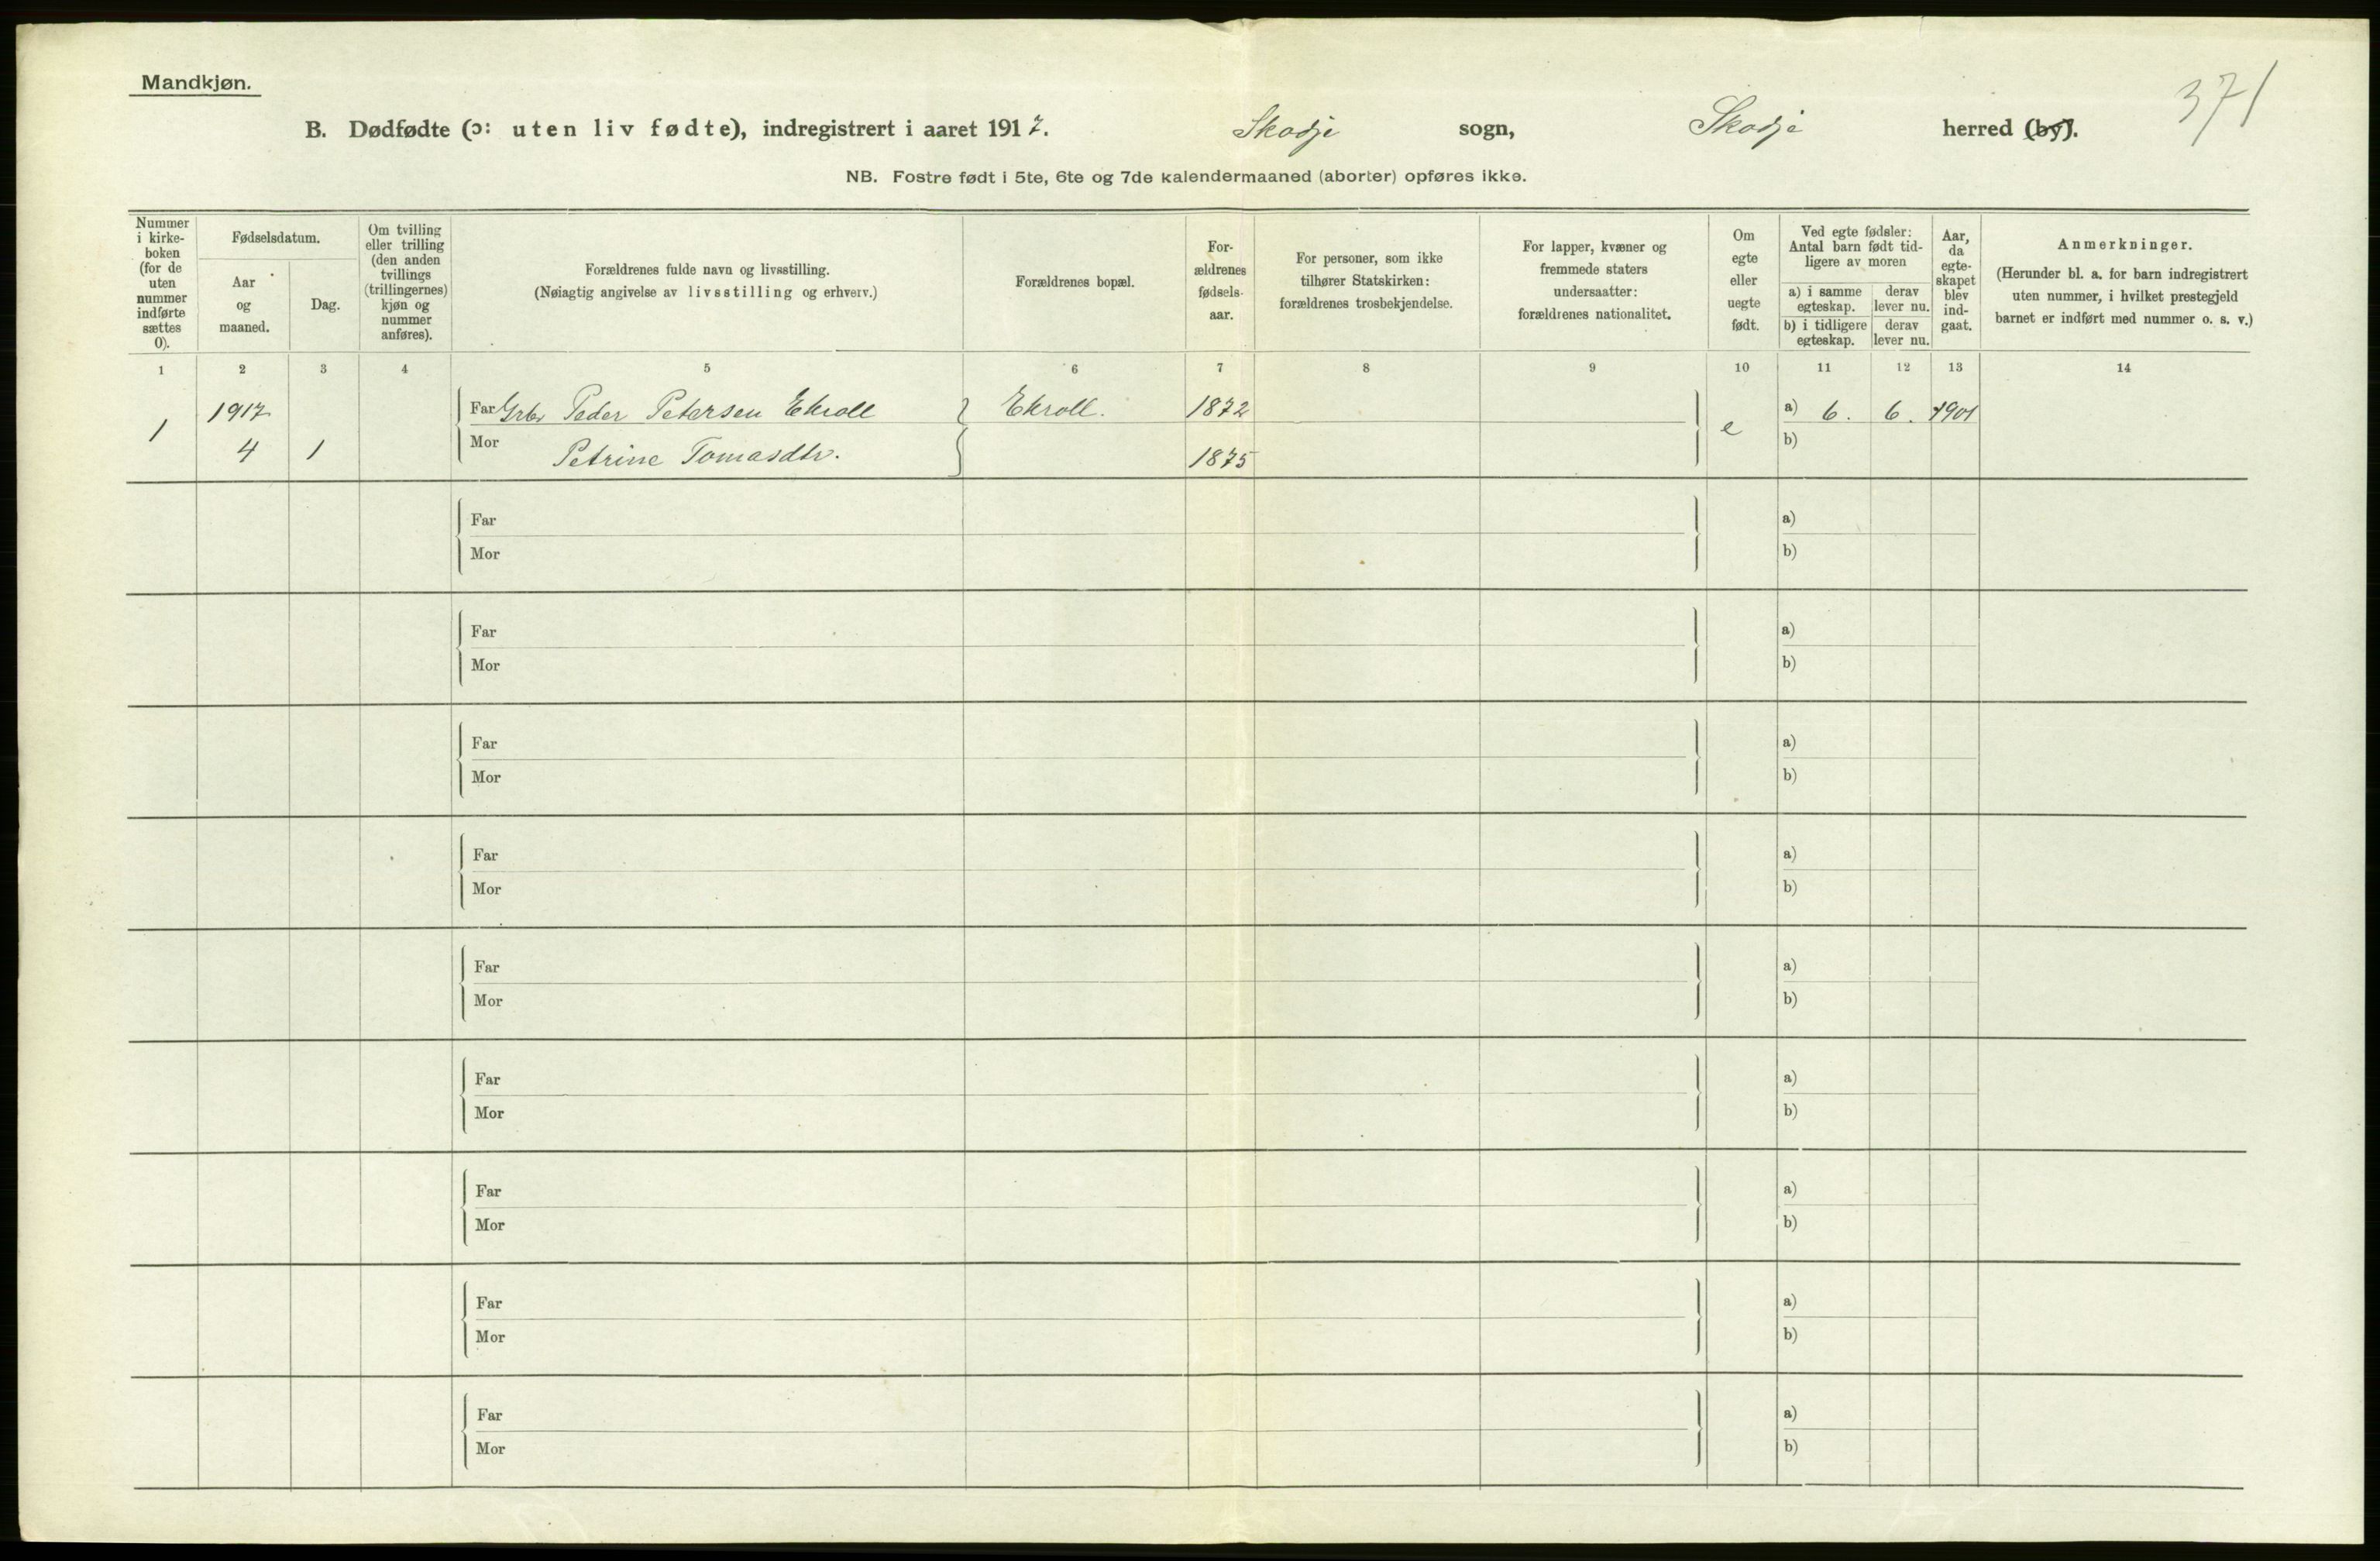 Mandkjøn.
371
B. Dødfødte (ɔ: uten liv fødte), indregistrert i aaret 1917. Skodje sogn, Skodje herred (by).
NB. Fostre født i 5te, 6te og 7de kalendermaaned (aborter) opføres ikke.
Nummer i kirke-boken (for de uten nummer indførte sættes 0).
Fødselsdatum.
Aar og maaned.
Dag.
Om tvilling eller trilling (den anden tvillings (trillingernes) kjøn og nummer anføres).
Forældrenes fulde navn og livsstilling.
(Nøiagtig angivelse av livsstilling og erhverv.)
Forældrenes bopæl.
For-ældrenes fødsels-aar.
For personer, som ikke tilhører Statskirken: forældrenes trosbekjendelse.
For lapper, kvæner og fremmede staters undersaatter: forældrenes nationalitet.
Om egte eller uegte født.
Ved egte fødsler: Antal barn født tid-ligere av moren
a) i samme egteskap. derav lever nu.
b) i tidligere egteskap. derav lever nu.
Aar, da egte-skapet blev ind-gaat.
Anmerkninger.
(Herunder bl. a. for barn indregistrert uten nummer, i hvilket prestegjeld barnet er indført med nummer o. s. v.)
1 2 3 4 5 6 7 8 9 10 11 12 13 14
1917 Far Grbr Peder Petersen Ekroll Ekroll. 1872 a) 6. 6. 1901
1 4 1 Mor Petrine Tomasdtr. 1875 e b)
Far a)
Mor b)
Far a)
Mor b)
Far a)
Mor b)
Far a)
Mor b)
Far a)
Mor b)
Far a)
Mor b)
Far a)
Mor b)
Far a)
Mor b)
Far a)
Mor b)